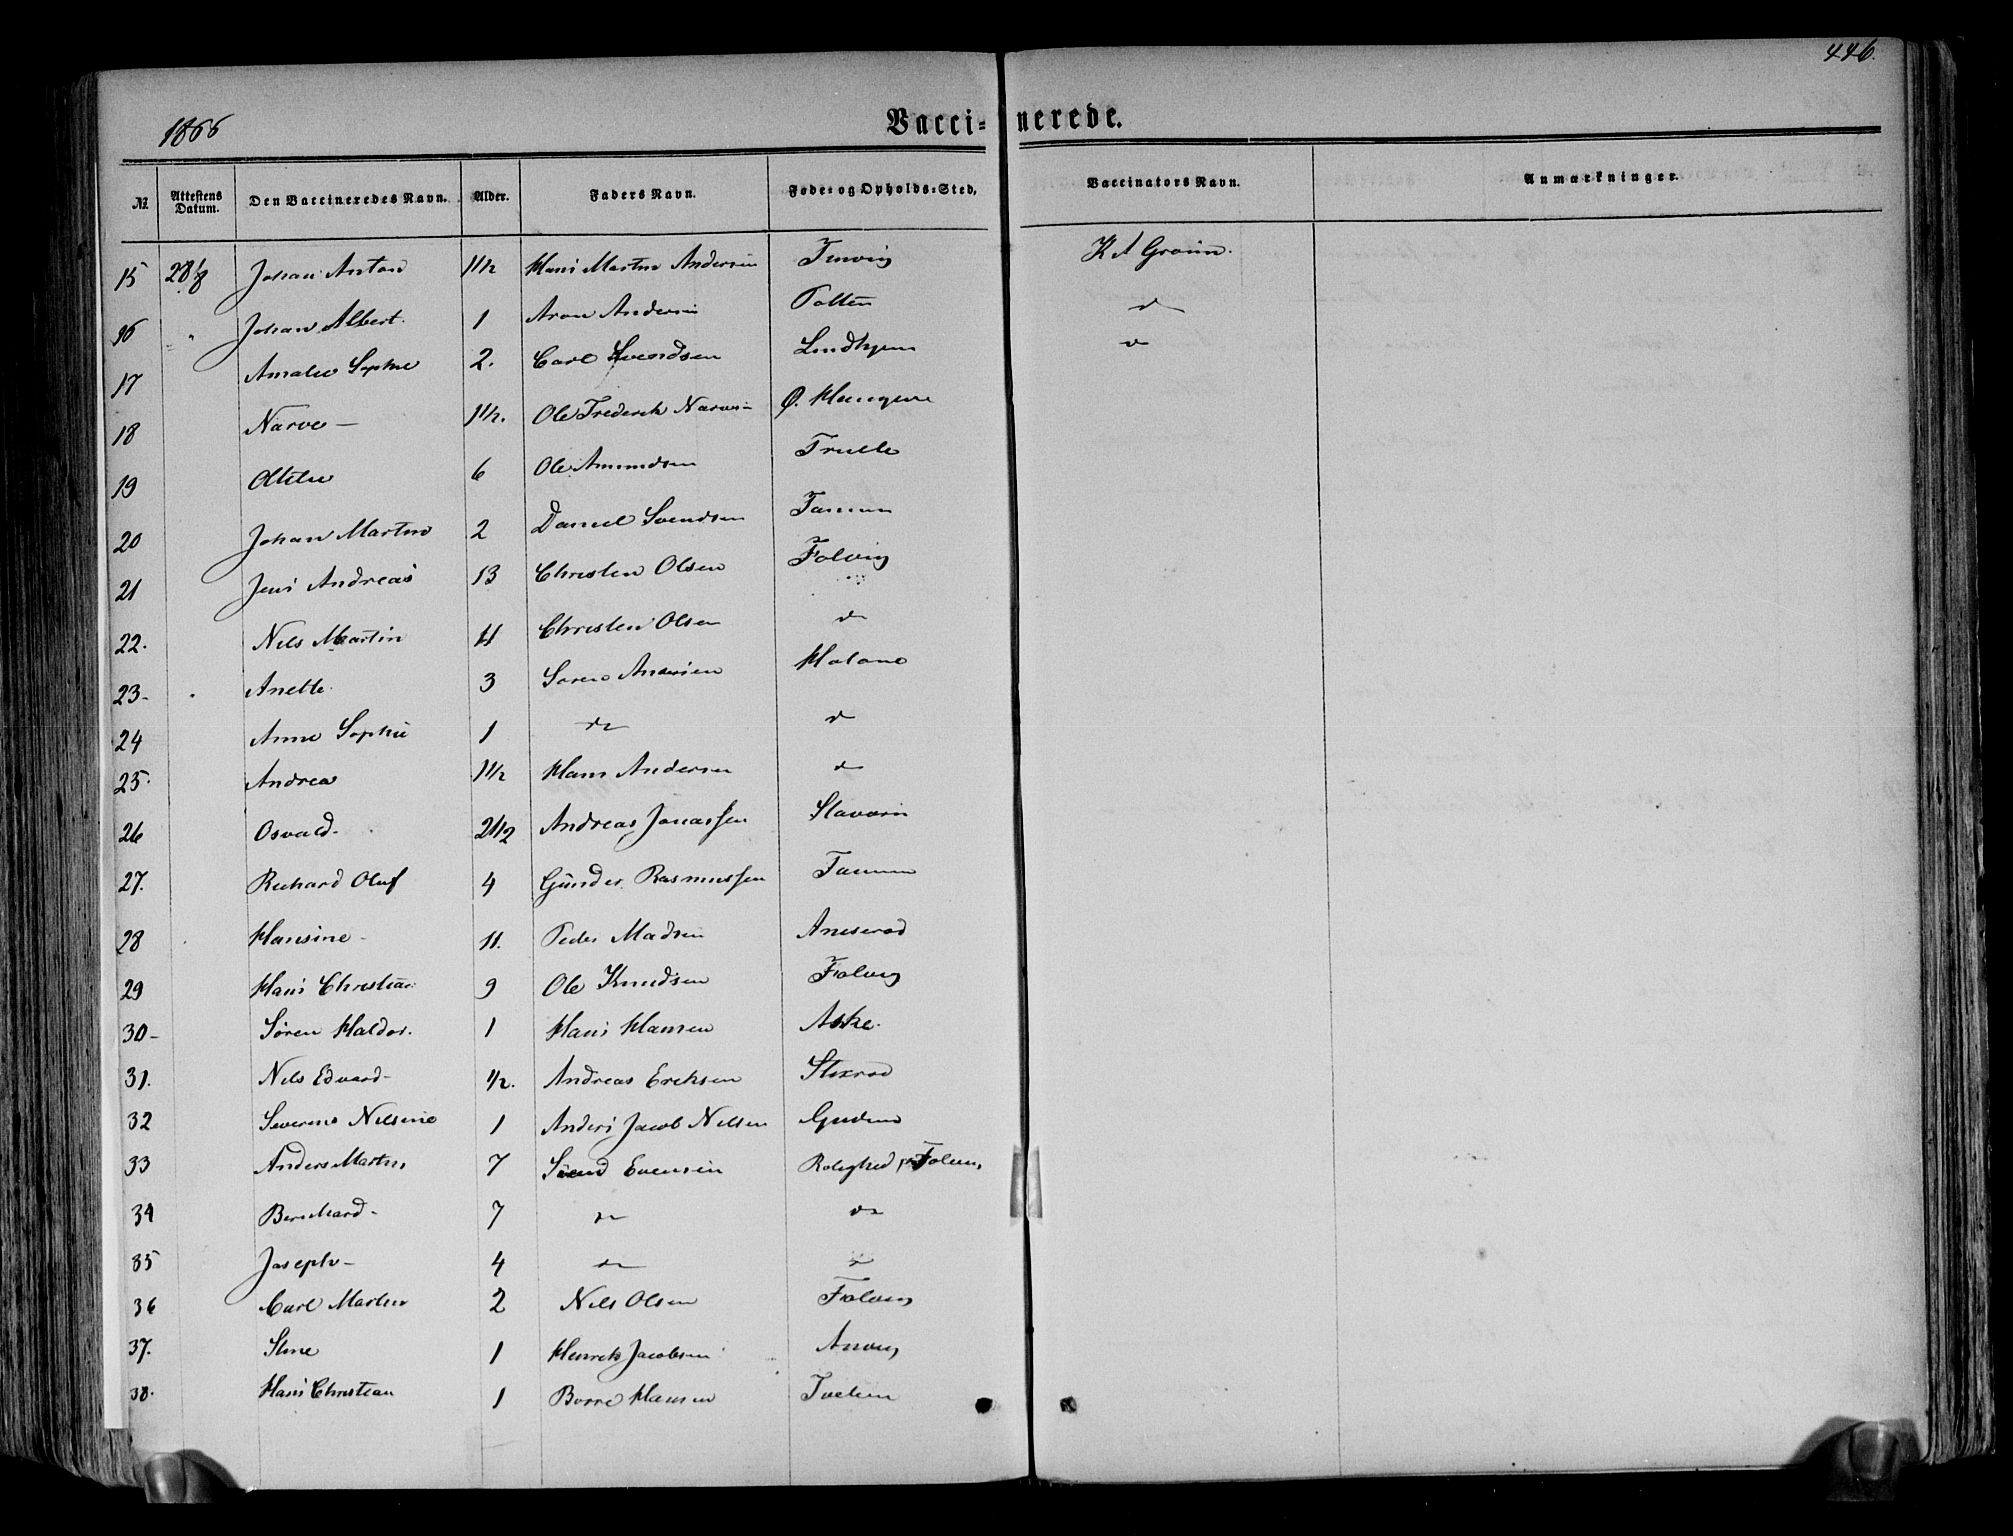 446.
1866
Vaccinerede.
No. Attestens Datum. Den Vaccineredes Navn. Alder. Faders Navn. Føde- og Opholds-Sted. Vaccinators Navn. Anmærkninger.
15 28/8 Johan Anton 1 1/2 Hans Martin Andersen K A
16 " Johan Albert. 1 Aron Andersen d
17 Amalie Sophie 2. Carl Svendsen Lindhjem d
18 Narve — 1 1/2. Ole Frederik Ø.
19 6 Ole Amundsen
20 Johan Martin 2 Daniel Svendsen Tanum
21 Jens Andreas 13 Christen Olsen Falvig
22. Nils Martin 11 Christen Olsen d
23- Anette 3 Søren Andersen
24 Anne Sophie 1 do d
25. Andrea 1 1/2 Hans Andersen d
26 Osvald- 2 1/2 Andreas Jonassen Stavern
27. Richard Oluf 4 Gunder Rasmussen Tanum
28 Hansine- 11. Peder Madsen
29 Hans Christian 9 Ole Knudsen Falvig
30- Søren Haldor. 1 Hans Hansen Aske.
31. Nils Edvard- 1/2. Andreas Eriksen
32 Severine Nilsine 1 Anders Jacob Nilsen
33 Anders Martin 7 Svend Evensen Rolighed
34 Bernhard- 7 do do
35 Joseph- 4 do do
36 Carl Martin 2 Nils Olsen Falvig
37. Stine 1 Henrik Jacobsen
38. Hans Christian 1 Børre Hansen